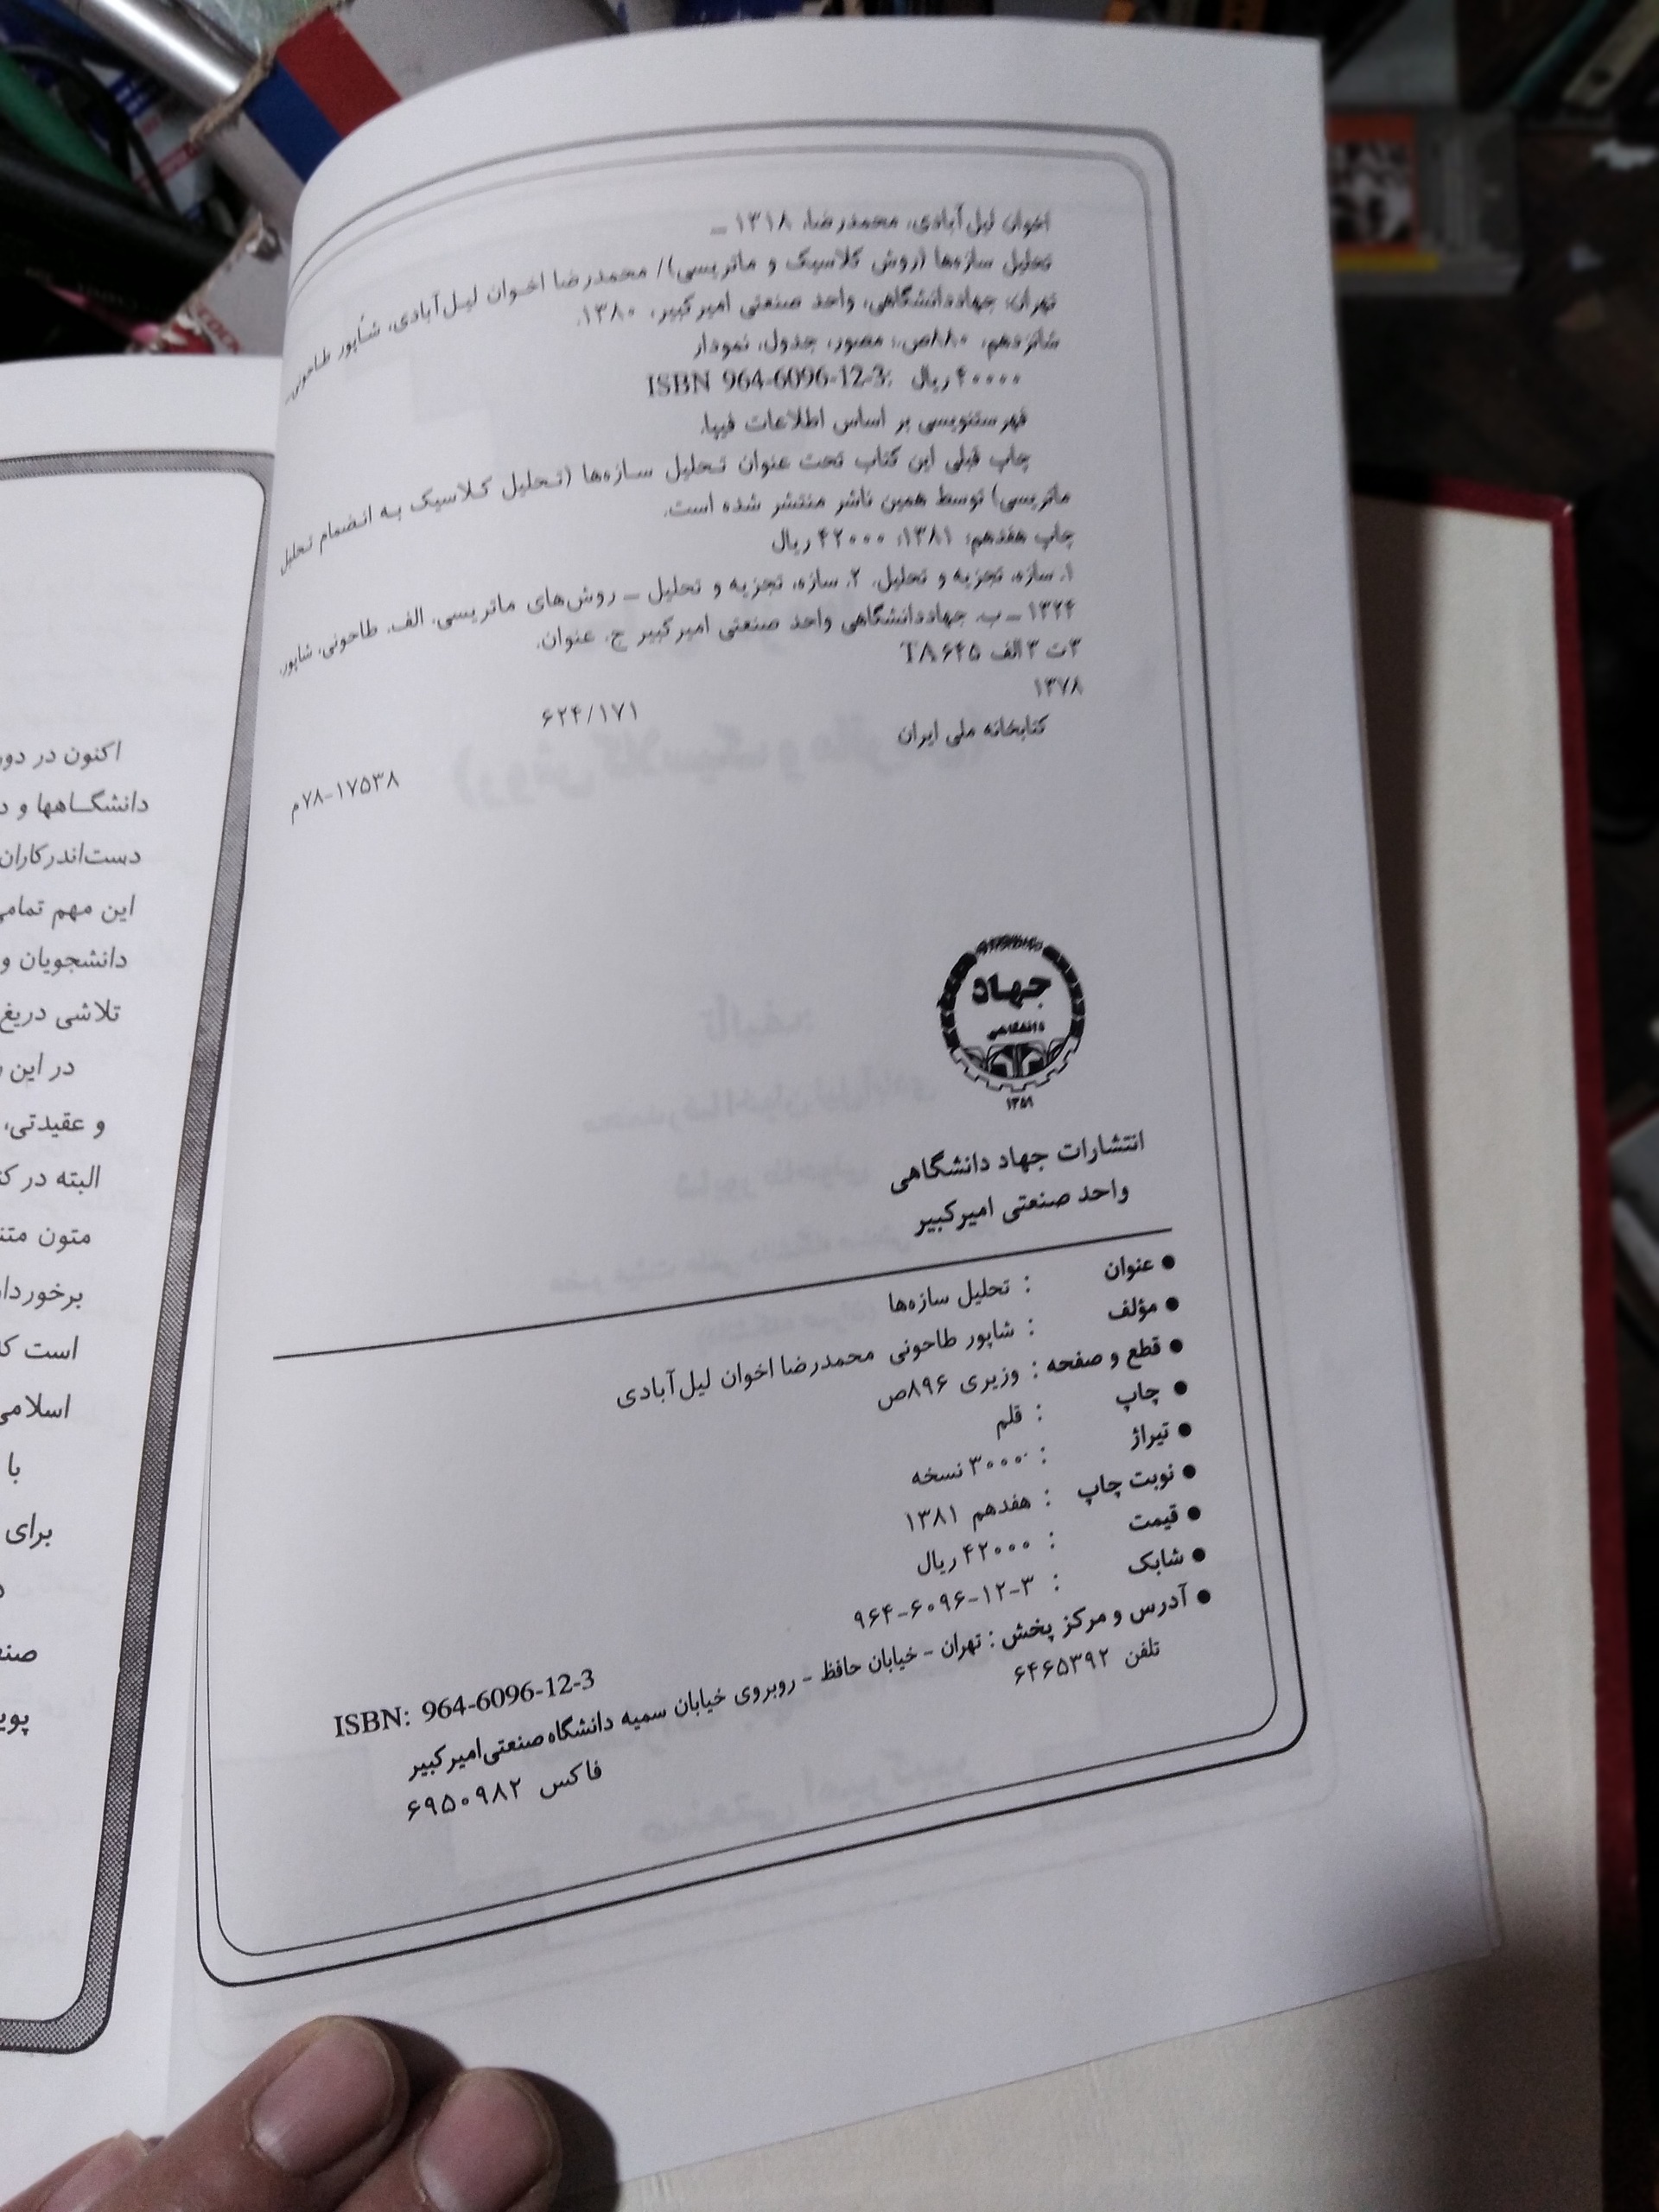 اخوان لیل‌آبادی، محمدرضا، ۱۳۱۸ ـ
تحلیل سازه‌ها (روش کلاسیک و ماتریسی)/ محمدرضا اخوان لیل‌آبادی، شاپور طاحونی.ـ
تهران: جهاددانشگاهی، واحد صنعتی امیرکبیر، ۱۳۸۰.
شانزدهم، ۸۸۰ص.: مصور، جدول، نمودار
ISBN 964-6096-12-3: ۴۰۰۰۰ ریال
فهرستنویسی بر اساس اطلاعات فیپا.
چاپ قبلی این کتاب تحت عنوان تحلیل سازه‌ها (تحلیل کلاسیک به انضمام تحلیل
ماتریسی) توسط همین ناشر منتشر شده است.
چاپ هفدهم: ۱۳۸۱؛ ۴۲۰۰۰ ریال
۱. سازه، تجزیه و تحلیل. ۲. سازه، تجزیه و تحلیل ـ روش‌های ماتریسی. الف. طاحونی، شاپور،
۱۳۲۴ ـ ب. جهاددانشگاهی واحد صنعتی امیرکبیر ج. عنوان.
۳ت ۳الف TA۶۴۵
۱۳۷۸
۶۲۴/۱۷۱
کتابخانه ملی ایران
۷۸-۱۷۵۳۸م
جهاد
دانشگاهی
۱۳۵۹
انتشارات جهاد دانشگاهی
واحد صنعتی امیرکبیر
● عنوان : تحلیل سازه‌ها
● مؤلف : شاپور طاحونی محمدرضا اخوان لیل‌آبادی
● قطع و صفحه : وزیری ۸۹۶ص
● چاپ : قلم
● تیراژ : ۳۰۰۰ نسخه
● نوبت چاپ : هفدهم ۱۳۸۱
● قیمت : ۴۲۰۰۰ ریال
● شابک : ۹۶۴-۶۰۹۶-۱۲-۳
ISBN: 964-6096-12-3
● آدرس و مرکز پخش : تهران - خیابان حافظ - روبروی خیابان سمیه دانشگاه صنعتی امیرکبیر
تلفن ۶۴۶۵۳۹۲ فاکس ۶۹۵۰۹۸۲
اکنون در دور
دانشگاهها و د
دست‌اندرکاران
این مهم تمامی
دانشجویان و
تلاشی دریغ
در این
و عقیدتی،
البته در ک
متون متن
برخوردار
است ک
اسلامی
با
برای
صنع
پوی